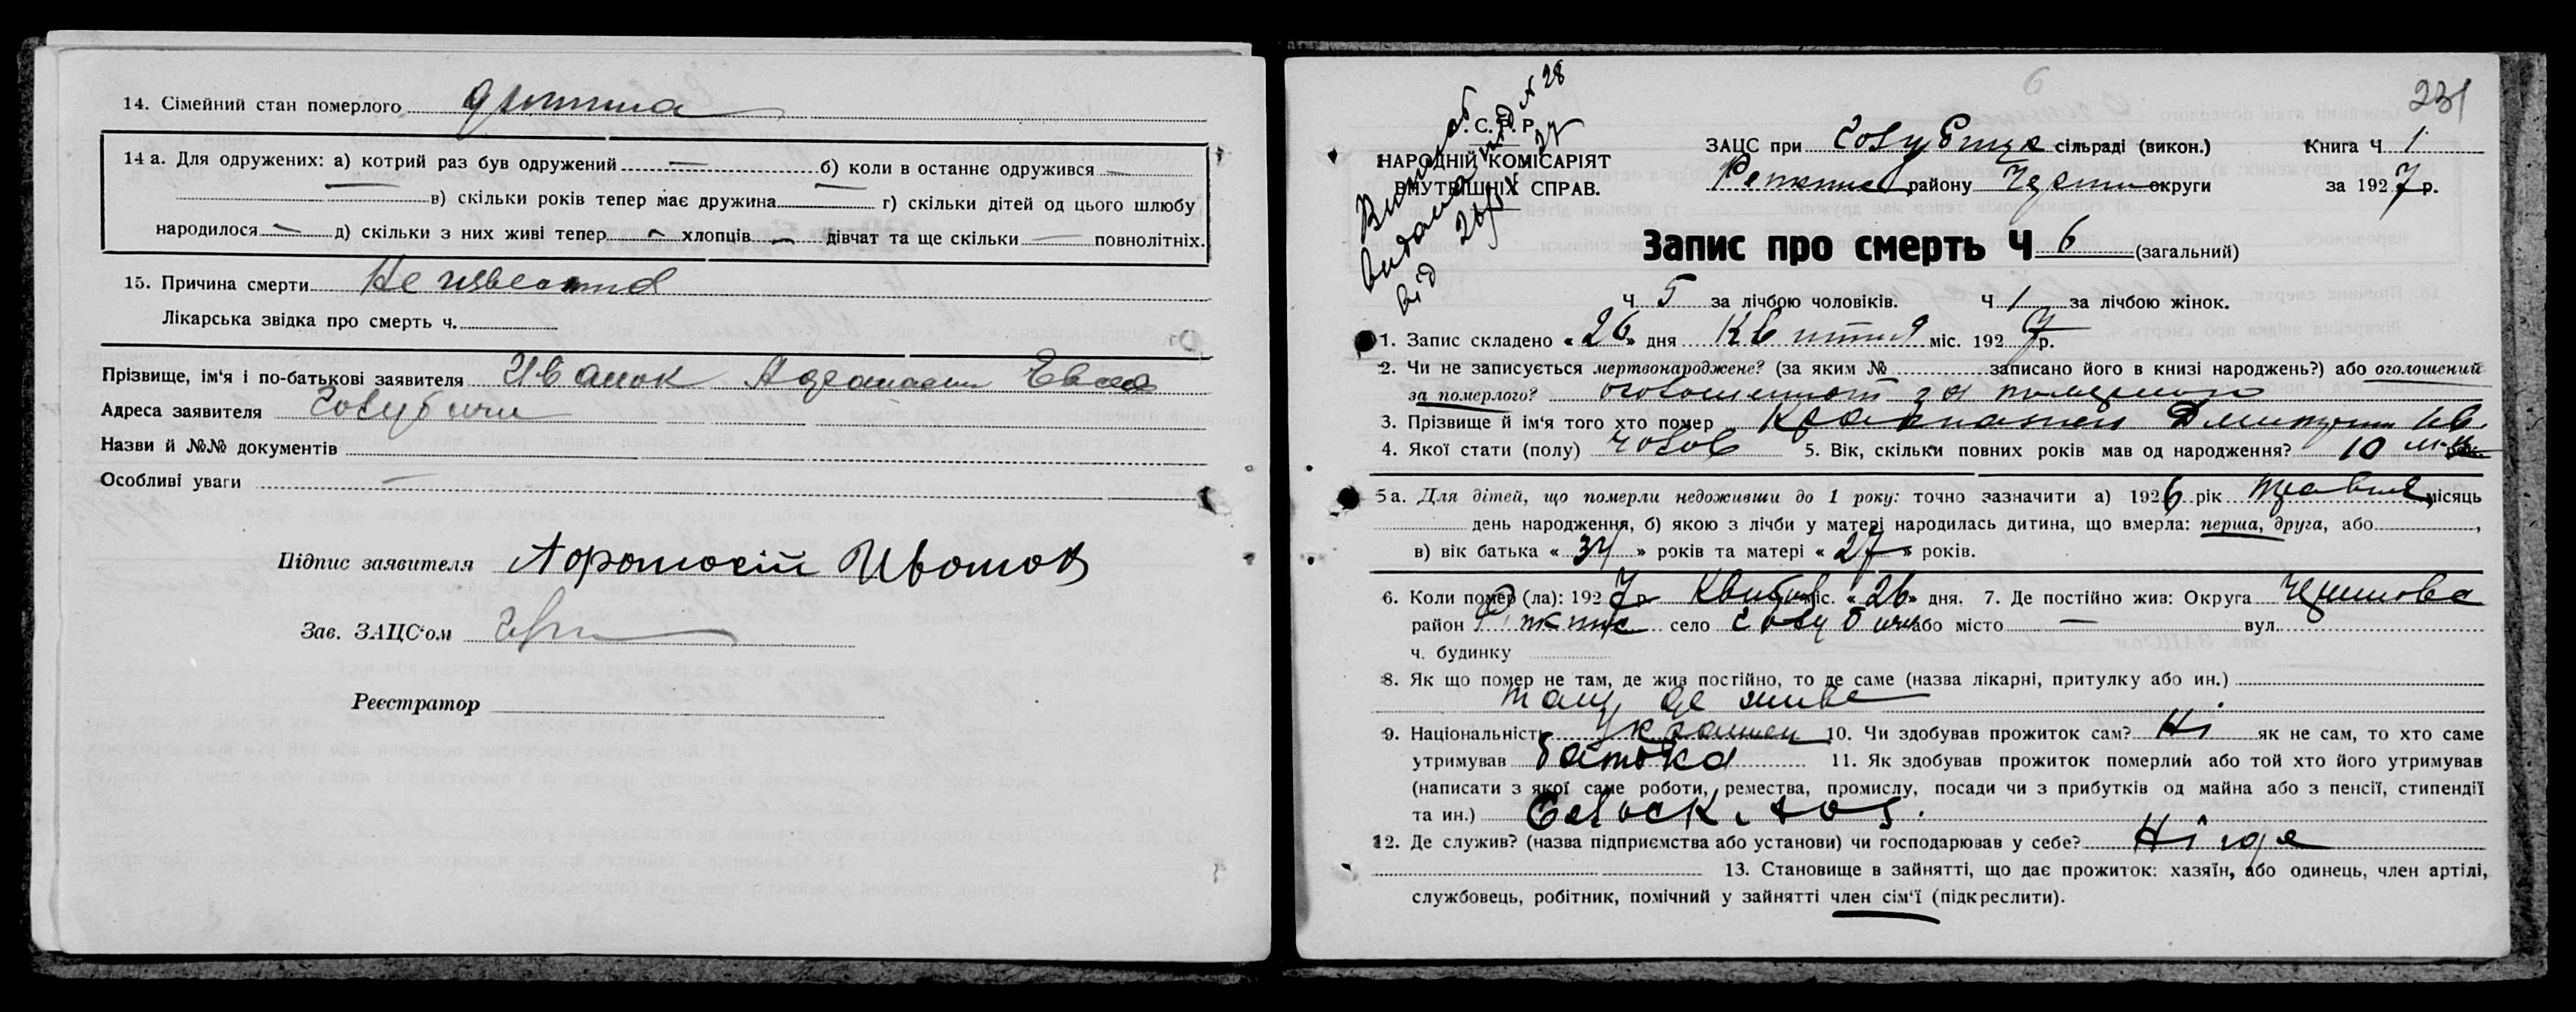 14. Сімейний стан померлого дитина
14 а. Для одружених: а) котрий раз був одружений — б) коли в останнє одружився —
— в) скільки років тепер має дружина — г) скільки дітей од цього шлюбу
народилося — д) скільки з них живі тепер — хлопців — дівчат та ще скільки — повнолітніх.
15. Причина смерти Не известна
Лікарська звідка про смерть ч.
Прізвище, ім'я і по-батькові заявителя Иванок
Адреса заявителя Голубичи
Назви й №№ документів
Особливі уваги —
Підпис заявителя
Зав. ЗАЦС'ом
Реєстратор
231
6
У. С. Р. Р.
НАРОДНІЙ КОМІСАРІЯТ
ВНУТРІШНІХ СПРАВ.
№ 28
27
від
ЗАЦС при сільраді (викон.) Книга Ч 1
району округи за 1927 р.
Запис про смерть Ч 6 (загальний)
Ч 5 за лічбою чоловіків. Ч 1 за лічбою жінок.
1. Запис складено « 26 » дня Квитня міс. 1927 р.
2. Чи не записується мертвонароджене? (за яким № записано його в книзі народжень?) або оголошений
за померлого? за
3. Прізвище й ім'я того хто помер Дмитрий Ив.
4. Якої стати (полу) Чолов 5. Вік, скільки повних років мав од народження? 10 м-ц
5 а. Для дітей, що померли недоживши до 1 року: точно зазначити а) 1926 рік Травня місяць
день народження, б) якою з лічби у матері народилась дитина, що вмерла: перша, друга, або ,
в) вік батька « 34 » років та матері « 27 » років.
6. Коли помер (ла): 1927 р. міс. « 26 » дня. 7. Де постійно жив: Округа
район село Голубичи або місто — вул.
ч. будинку
8. Як що помер не там, де жив постійно, то де саме (назва лікарні, притулку або ин.)
там де живе
9. Національність Украинец 10. Чи здобував прожиток сам? Ні як не сам, то хто саме
утримував батько 11. Як здобував прожиток померлий або той хто його утримував
(написати з якої саме роботи, ремества, промислу, посади чи з прибутків од майна або з пенсії, стипендії
та ин.)
12. Де служив? (назва підприємства або установи) чи господарював у себе? Нігде
13. Становище в зайнятті, що дає прожиток: хазяїн, або одинець, член артілі,
службовець, робітник, помічний у зайнятті член сім'ї (підкреслити).